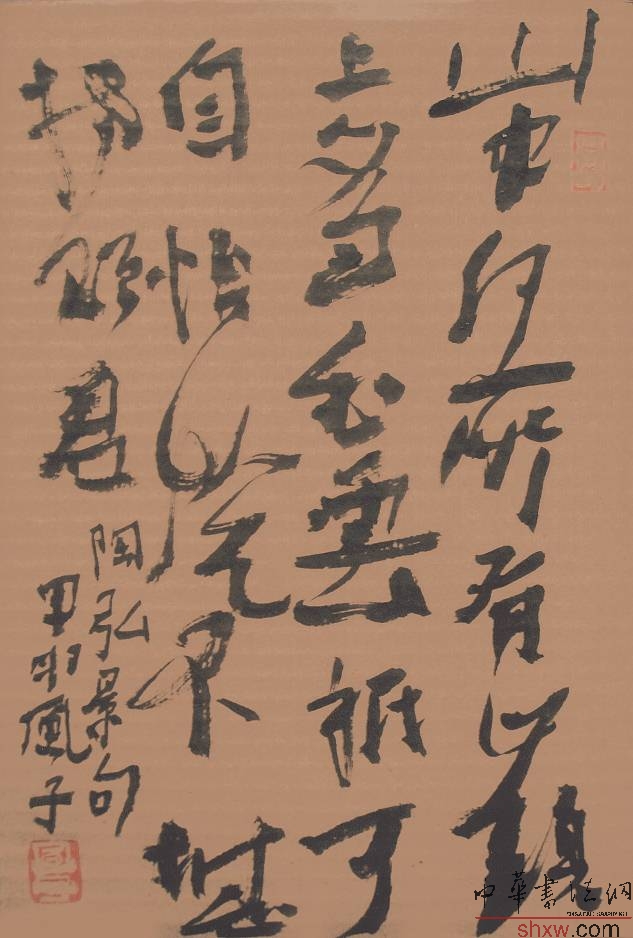 山中何所有嶺
上多白雲祇可
自怡悦不堪
持贈君
陶弘景句
甲風子
中華書法網
shxw.com